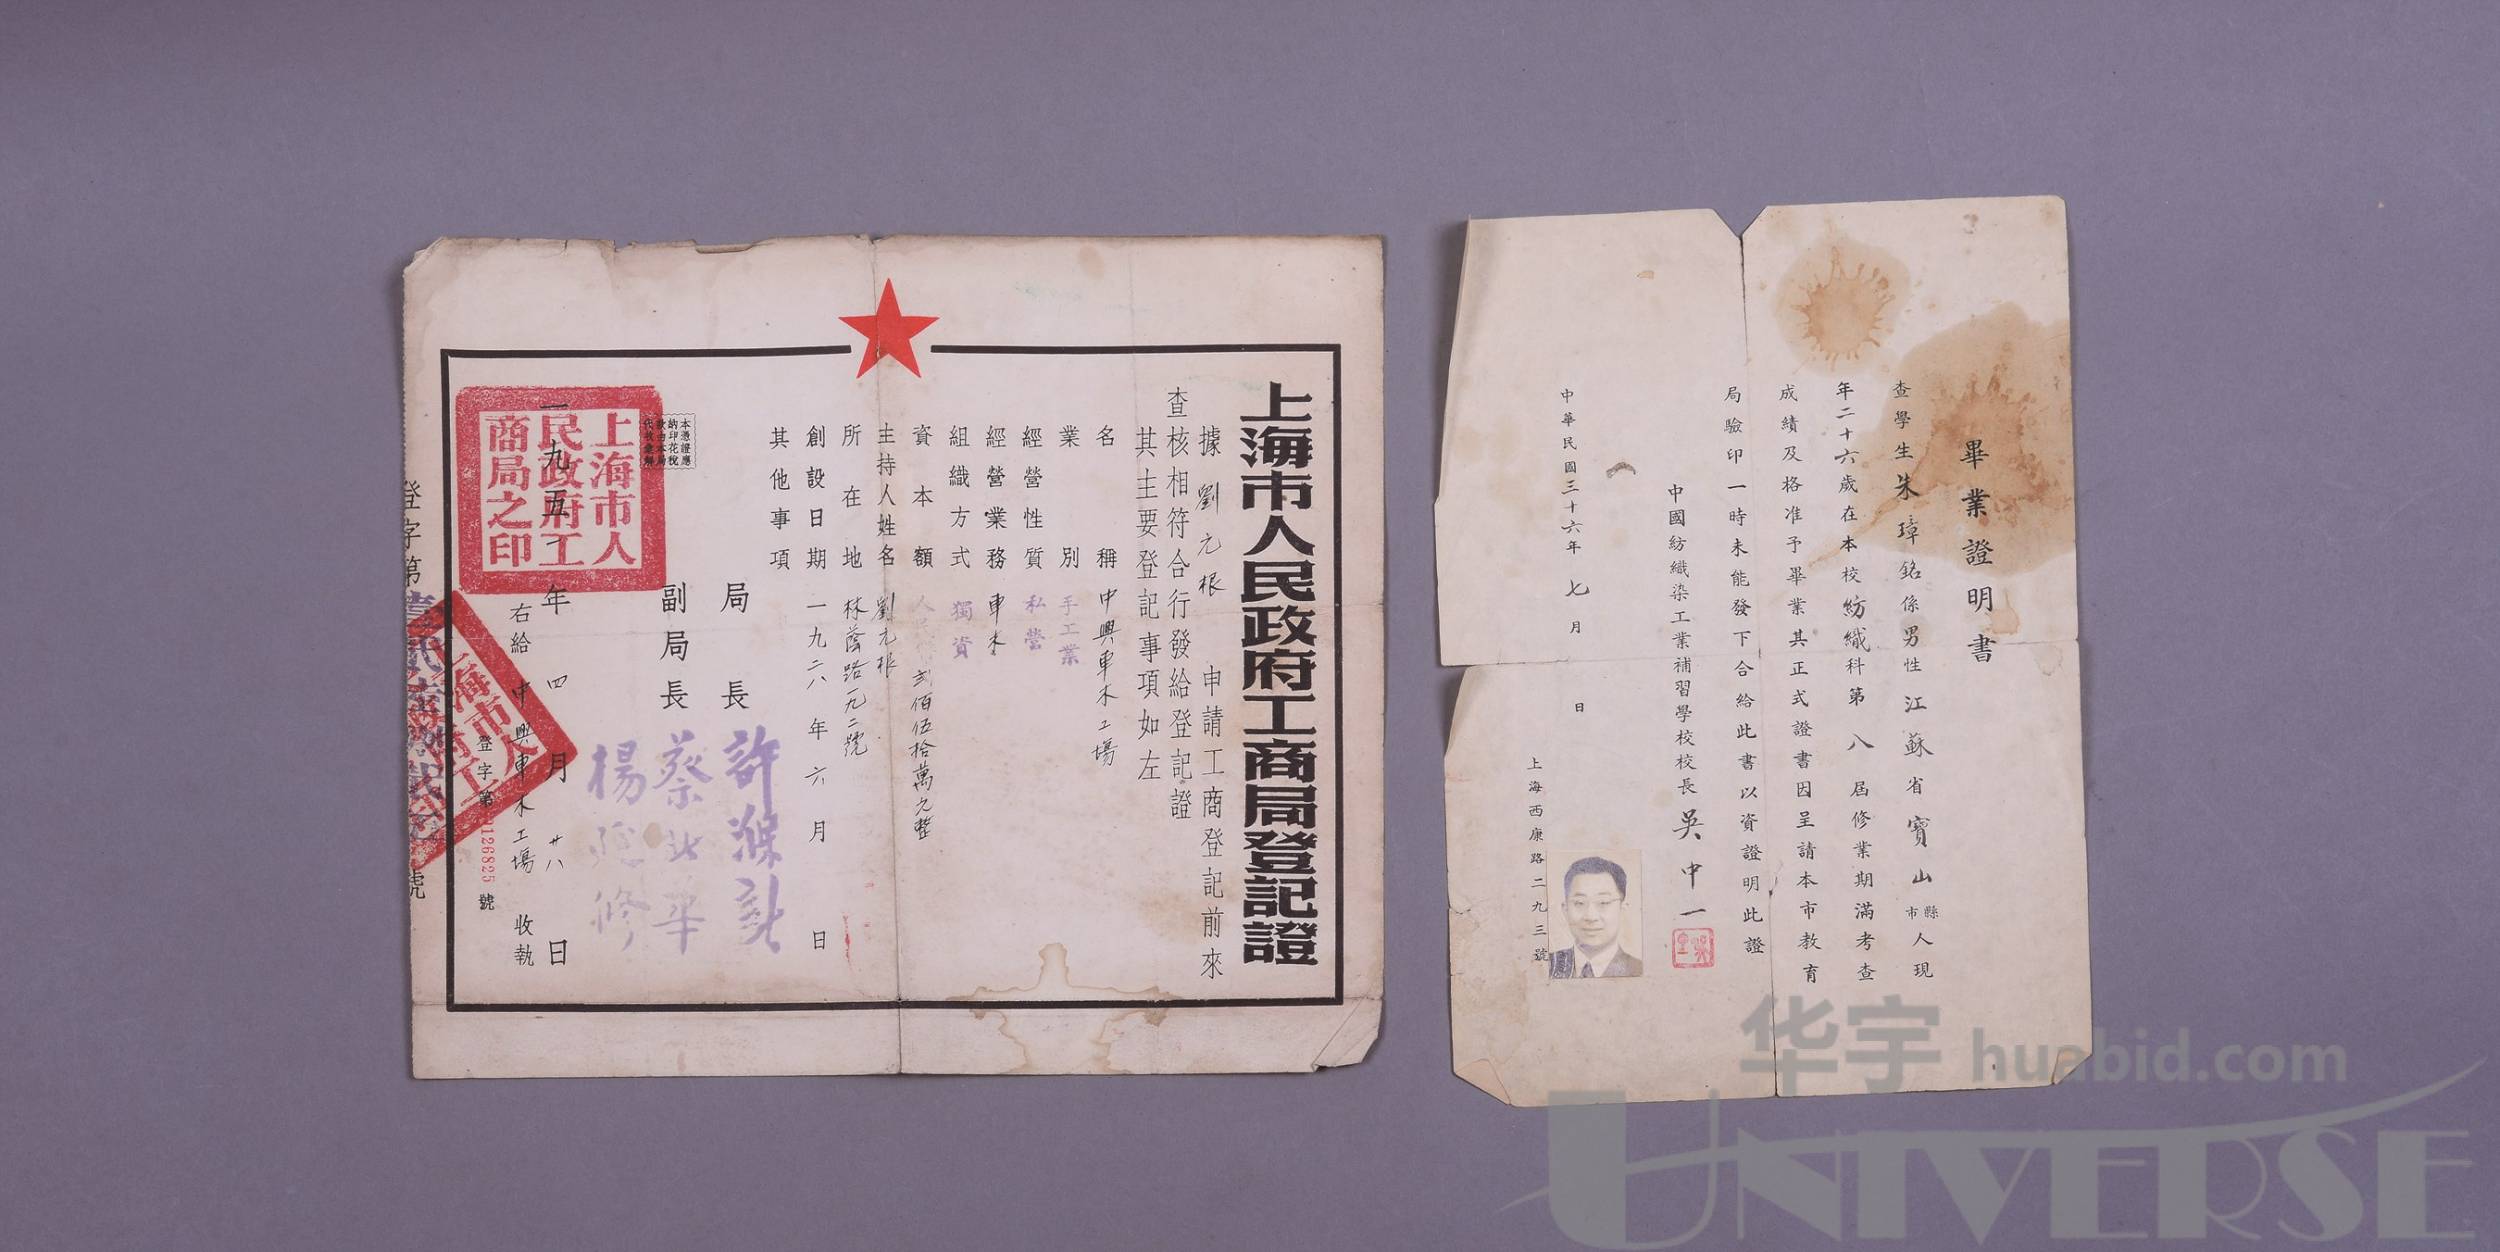 上海市人民政府工商局登記證
據 劉元根 申請工商登記前來
查核相符合行發給登記證
其主要登記事項如左
名稱 中興車木工場
業別 手工業
經營性質 私營
經營業務 車木
組織方式 獨資
資本額 人民幣 貳佰伍拾萬元整
主持人姓名 劉元根
所在地 林蔭路一九二號
創設日期 一九二八年六月 日
其他事項
局長 許滌新
副局長 蔡北華
楊延修
本憑證應
納印花稅
款由本局
代收彙解
上海市人
民政府工
商局之印
一九五一年四月廿八日
右給 中興車木工場 收執
登字第 126825 號
登字第
號
畢業證明書
查學生朱璋銘係男性江蘇省寶山縣市人現
年二十六歲在本校紡織科第八屆修業期滿考查
成績及格准予畢業其正式證書因呈請本市教育
局驗印一時未能發下合給此書以資證明此證
中國紡織染工業補習學校校長吳中一
中華民國三十六年七月 日
上海西康路二九三號
华宇 huabid.com
UNIVERSE